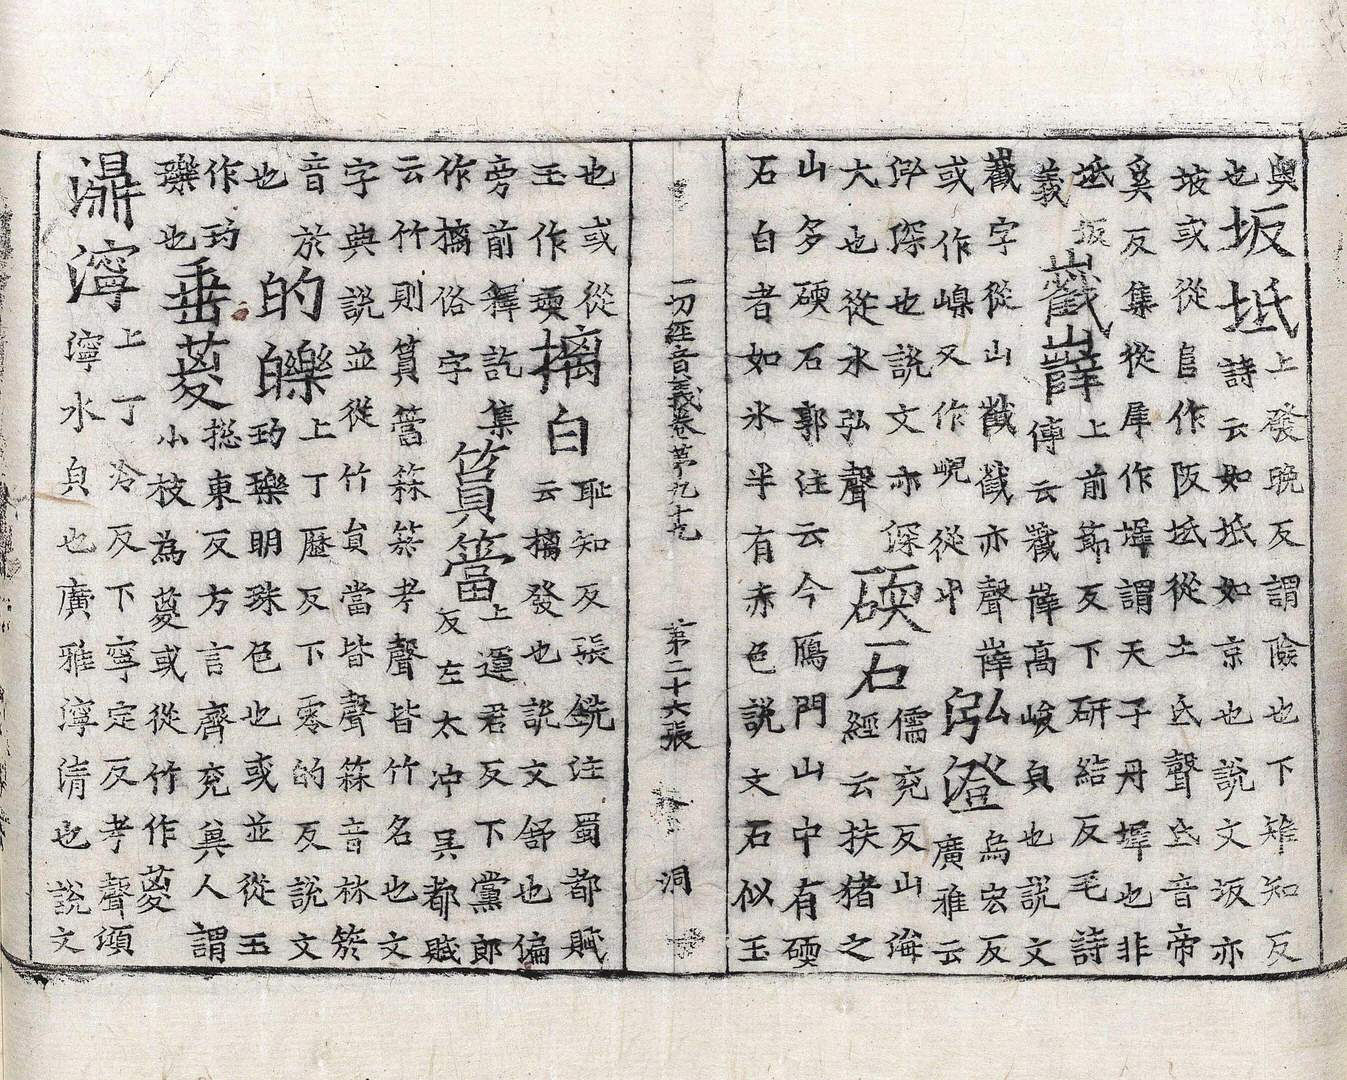 奧
也
坂坻
上發晚反謂險也下雉知反
詩云如坻如京也說文坂亦
坡或從𨸏作阪坻從土氐聲氐音帝
奚反集從犀作墀謂天子丹墀也非
坻坂
義
巀嶭
上前節反下研結反毛詩
傳云巀嶭高峻皃也說文
巀字從山巀亦聲嶭
或作嵲又作峴從屮
泓澄
烏宏反
廣雅云
泓深也說文亦深
大也從水弘聲
碝石
儒兗反山海
經云扶豬之
山多碝石郭注云今鴈門山中有碝
石白者如氷半有赤色說文石似玉
一切經音義卷第九十九 第二十六張 洞
也或從
玉作
摛白
恥知反張銑注蜀都賦
云摛發也說文舒也偏
旁前釋訖集
作攡俗字
篔簹
上運君反下黨郎
反左太冲吴都賦
云竹則篔簹箖箊考聲皆竹名也文
字典說並從竹員當皆聲箖音林箊
音於
也
的皪
上丁歷反下零的反說文
玓瓅明珠色也或並從玉
作玓
瓅也
垂葼
揔東反方言齊兗冀人謂
小枝為葼或從竹作葼
濎濘
上丁冷反下寧定反考聲濎
濘水皃也廣雅濘清也說文